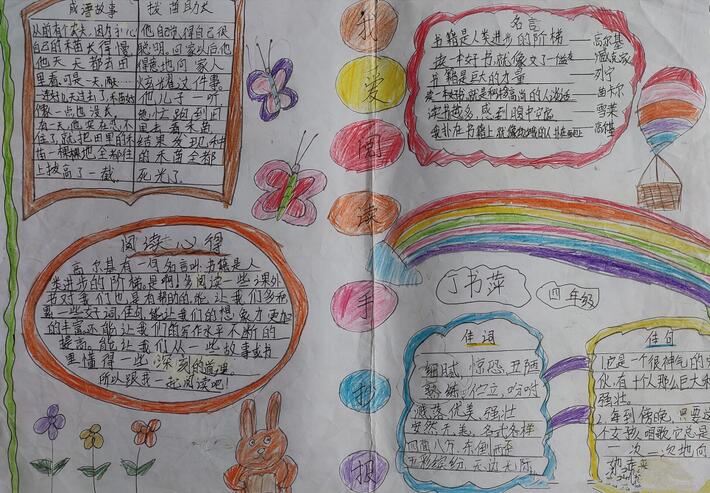 成语故事 拔苗助长
从前有个农夫,因为担心
自己的禾苗长得慢,
他天天都去田
里看,可是一天,两天
过去了,禾苗好
像一点也没长
有一天,他实在忍不
住了,就把田里的禾
苗一棵棵地全都往
上拔高了一截。
他自觉得自己很
聪明,回家以后他
得意地向家人
炫耀这件事。
他儿子一听
急忙跑到田
里去看禾苗,
结果发现,种
的禾苗全都
死光了。
我
爱
阅
读
手
抄
报
名言
书籍是人类进步的阶梯——高尔基
书籍是巨大的力量——列宁
读一本好书,就是和许多高尚的人谈话——笛卡尔
读书越多,感到腹中空虚——雪莱
阅读心得
高尔基有一句名言叫书籍是人
类进步的阶梯,是啊!多阅读一些课外
书对我们也是有帮助的,能让我们多积
累一些好词佳句,能让我们的想象力更加
的丰富,还能让我们的写作水平不断的
提高。能让我们从一些故事或书
里懂得一些深刻的道理
所以跟我一起阅读吧!
丁书萍
四年级
佳词
细腻、惊恐、丑陋
熟练、伫立、吩咐
溅落、优美、强壮
安然无恙、各式各样
四面八方、东倒西歪
五彩缤纷、无边无际
佳句
1.也是一个很神气的
伙,有十仈那么巨大和
强壮。
2.每到傍晚,只要这
个女孩,唱歌,它总是
一次一次地向
她